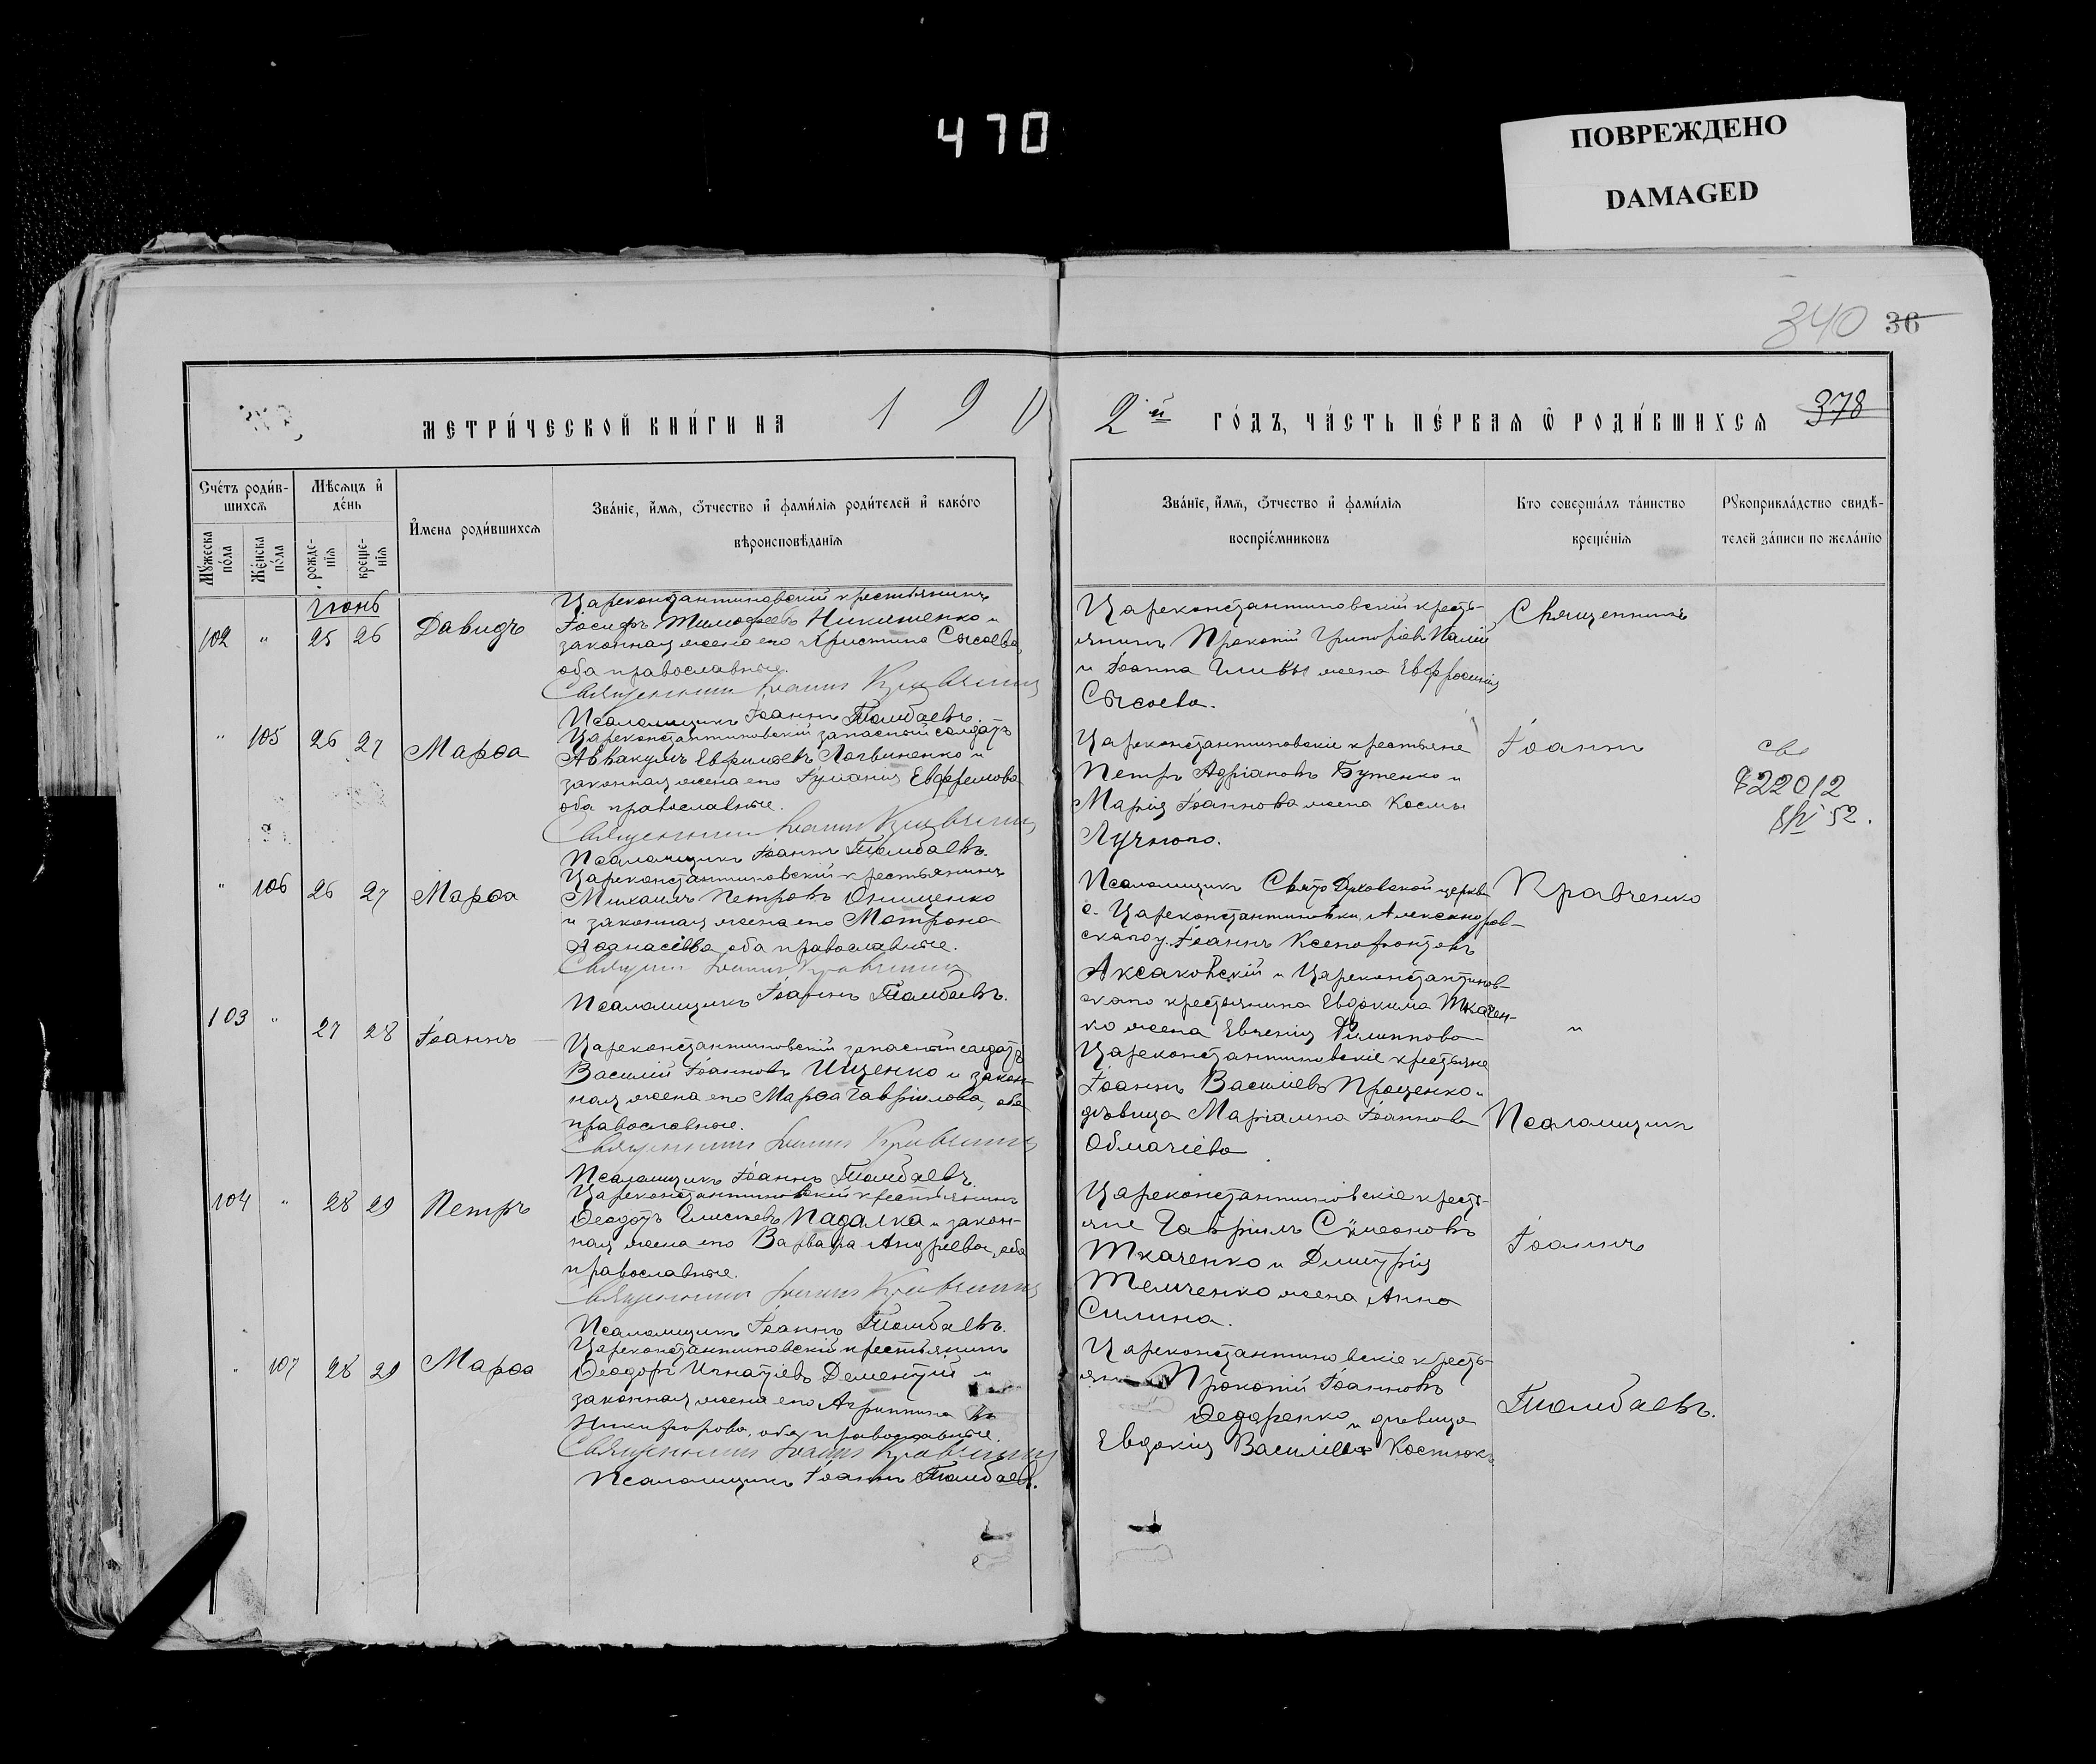 470
ПОВРЕЖДЕНО
DAMAGED
340 36
МЕТРИ́ЧЕСКОЙ КНИ́ГИ НА 190
2й ГО́ДЪ, ЧА́СТЬ ПЕ́РВАЯ Ѿ РОДИ́ВШИХСЯ 378
Сче́тъ роди́в-
шихся
Мѣ́сяцъ и҆
де́нь
Му́жеска
по́ла
Же́нска
по́ла
рожде-
нія
креще-
нія
И҆мена роди́вшихся
Зва́ніе, и҆́мя, ѻ҆́тчество и҆ фами́лія роди́телей и҆ како́го
вѣроисповѣ́данія
Зва́ніе, и҆́мя, ѻ҆́тчество и҆ фами́лія
воспріе́мниковъ
Кто соверша́лъ та́инство
креще́нія
Рꙋкоприкла́дство свидѣ́-
телей за́писи по жела́нію
Іюнь
102 " 25 26 Давидъ
Цареконстантиновскій крестьянинъ
Іосифъ Тимофеевъ Никитенко и
законная жена его Христина Сысоева,
оба православные.
Священникъ Іоаннъ Кравченко
Псаломщикъ Іоаннъ Томбаевъ.
Цареконстантиновскій кресть-
янинъ Прокопій Григорьевъ Палій
и Іоанна жена Евфросинія
Сысоева.
Священникъ
" 105 26 27 Марѳа
Цареконстантиновскій запасный солдатъ
Аввакумъ Логвиненко и
законная жена его Евфремова
оба православные.
Священникъ Іоаннъ Кравченко
Псаломщикъ Іоаннъ Томбаевъ.
Цареконстантиновскіе крестьяне
Петръ Адріановъ Бутенко и
Марія Іоаннова жена Космы
Лучного.
Іоаннъ
22012
52.
" 106 26 27 Марѳа
Цареконстантиновскій крестьянинъ
Михаилъ Петровъ Онищенко
и законная жена его Матрона
Аѳанасіева, оба православные.
Іоаннъ Кравченко
Псаломщикъ Іоаннъ Томбаевъ.
Псаломщикъ Свято Духовской церкви
с. Цареконстантиновки, Александров-
скаго у. Іоаннъ Ксенофонтовъ
Аксаковскій и Цареконстантинов-
скаго крестьянина Евдокима Ткачен-
ко жена Евгенія Филиппова
Кравченко
103 " 27 28 Іоаннъ
Цареконстантиновскій запасный солдатъ
Василій Іоанновъ Ищенко и закон-
ная жена его Марѳа Гавріилова, оба
православные.
Священникъ Іоаннъ Кравченко
Псаломщикъ Іоаннъ Томбаевъ.
Цареконстантиновскіе крестьяне
Іоаннъ Василіевъ Проценко и
дѣвица Маріамна Іоаннова
"
Псаломщикъ
104 " 28 29 Петръ
Цареконстантиновскій крестьянинъ
Ѳеодотъ Падалка и закон-
ная жена его Варвара Андреева, оба
православные.
Священникъ Іоаннъ Кравченко
Псаломщикъ Іоаннъ Томбаевъ.
Цареконстантиновскіе кресть-
яне Гавріилъ Сѵмеоновъ
Ткаченко и Димитрія
Темченко жена Анна
Силина.
Іоаннъ
" 107 28 29 Марѳа
Цареконстантиновскій крестьянинъ
Ѳеодоръ Игнатіевъ Дементій и
законная жена его Агриппина
Никифорова, оба православные.
Священникъ Іоаннъ Кравченко
Псаломщикъ Іоаннъ Томбаевъ.
Цареконстантиновскіе кресть-
яне Прокопій Іоанновъ
Ѳедоренко и дѣвица
Евдокія Василіева Костюкъ.
Томбаевъ.